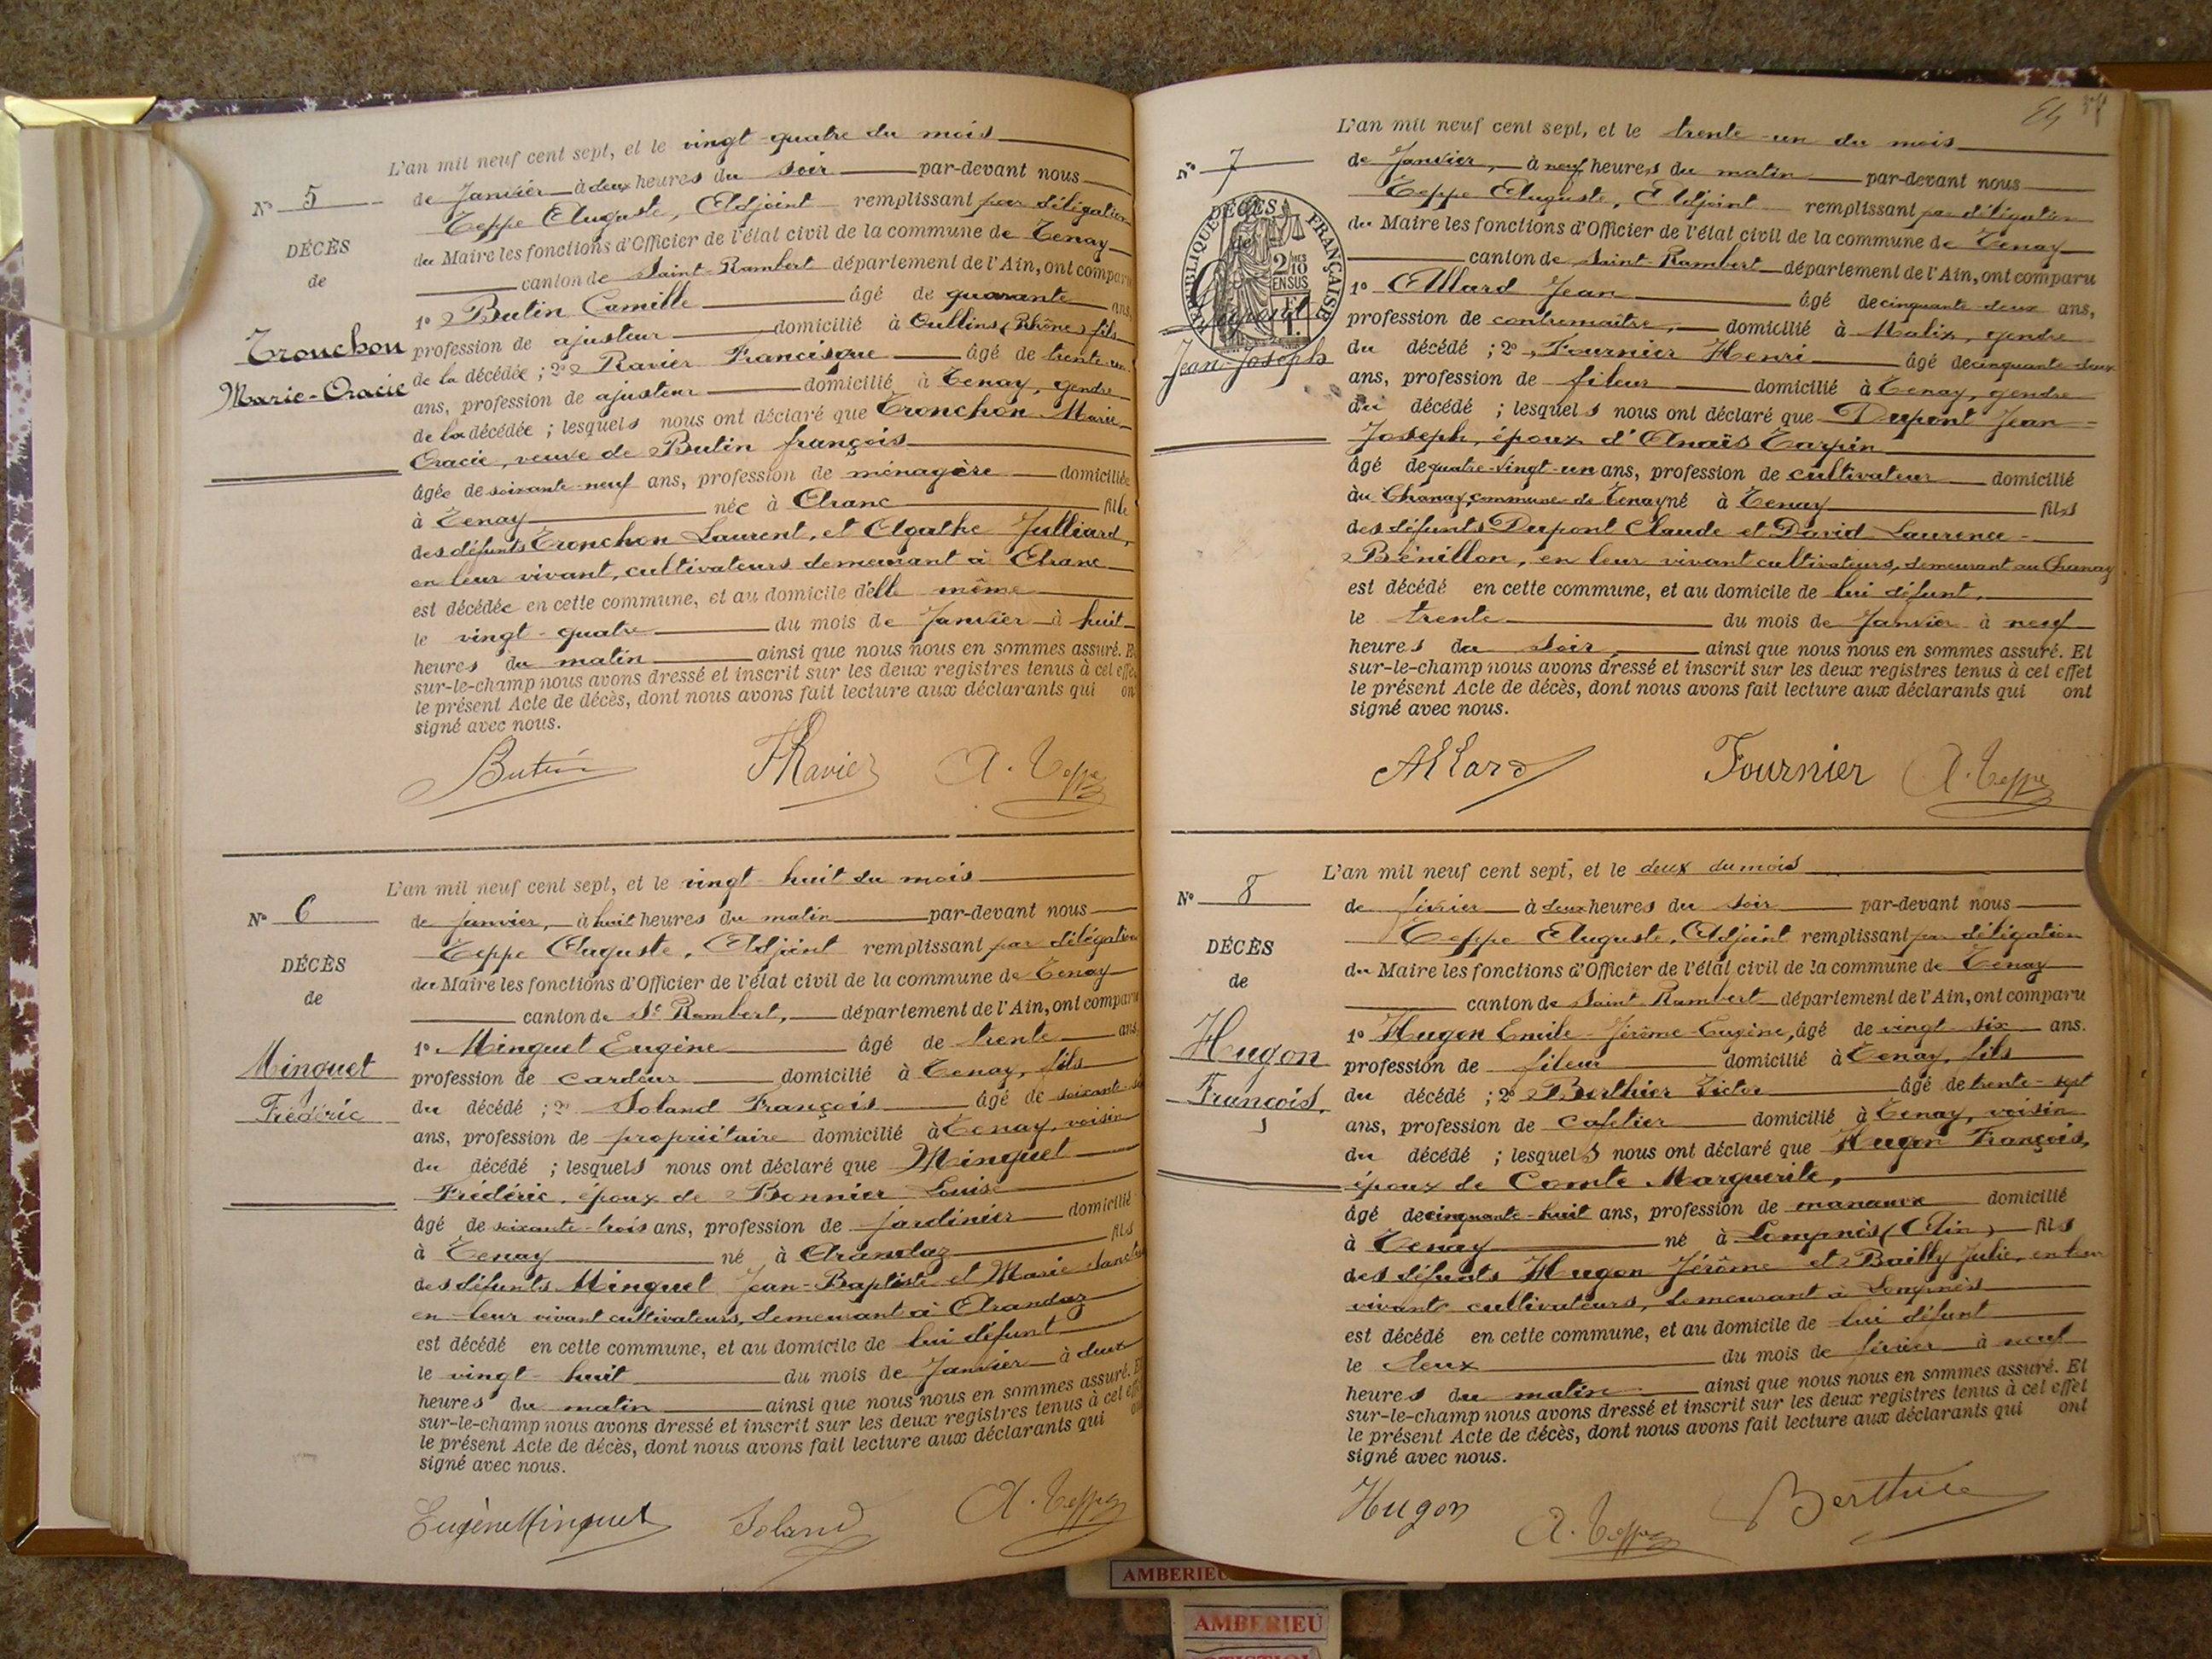 L'an mil neuf cent sept, et le vingt-quatre du mois
N° 5
de Janvier à deux heures du soir par-devant nous
Teppe Auguste, Adjoint remplissant par délégation
DÉCÈS
du Maire les fonctions d'Officier de l'état civil de la commune de Tenay
de
canton de Saint-Rambert département de l'Ain, ont comparu
1° Butin Camille âgé de quarante ans,
Tronchon
profession de ajusteur domicilié à Oullins (Rhône) fils
Marie-Oracie
de la décédée ; 2° Ravier Francisque âgé de trente-un
ans, profession de ajusteur domicilié à Tenay, gendre
de la décédée ; lesquels nous ont déclaré que Tronchon Marie
Oracie, veuve de Butin françois
âgée de soixante-neuf ans, profession de ménagère domiciliée
à Tenay née à Aranc fille
des défunts Tronchon Laurent, et Agathe Julliard,
en leur vivant, cultivateurs demeurant à Aranc
est décédée en cette commune, et au domicile d'elle même
le vingt-quatre du mois de Janvier à huit
heures du matin ainsi que nous nous en sommes assuré. Et
sur-le-champ nous avons dressé et inscrit sur les deux registres tenus à cel effet
le présent Acte de décès, dont nous avons fait lecture aux déclarants qui ont
signé avec nous.
Butin FRavier A. Teppe
L'an mil neuf cent sept, et le vingt-huit du mois
N° 6
de janvier, à huit heures du matin par-devant nous
Teppe Auguste, Adjoint remplissant par délégation
DÉCÈS
du Maire les fonctions d'Officier de l'état civil de la commune de Tenay
de
canton de St Rambert, département de l'Ain, ont comparu
1° Minguet Eugène âgé de trente ans,
Minguet
profession de cardeur domicilié à Tenay, fils
Frédéric
du décédé ; 2° Soland François âgé de soixante-
ans, profession de propriétaire domicilié à Tenay, voisin
du décédé ; lesquels nous ont déclaré que Minguet
Frédéric, époux de Bonnier Louise
âgé de soixante-trois ans, profession de jardinier domicilié
à Tenay né à Arandaz fils
des défunts Minguet Jean-Baptiste et Marie
en leur vivant cultivateurs, demeurant à Arandaz
est décédé en cette commune, et au domicile de lui défunt
le vingt-huit du mois de Janvier à deux
heures du matin ainsi que nous nous en sommes assuré. Et
sur-le-champ nous avons dressé et inscrit sur les deux registres tenus à cel effet
le présent Acte de décès, dont nous avons fait lecture aux déclarants qui ont
signé avec nous.
Eugène Minguet Soland A. Teppe
L'an mil neuf cent sept, et le trente-un du mois
N° 7
de Janvier, à neuf heures du matin par-devant nous
Teppe Auguste, Adjoint remplissant par délégation
DÉCÈS
RÉPUBLIQUE FRANÇAISE
2/10 EN SUS
du Maire les fonctions d'Officier de l'état civil de la commune de Tenay
de
canton de Saint-Rambert département de l'Ain, ont comparu
1° Allard Jean âgé de cinquante-deux ans,
Dupont
profession de contremaître, domicilié à Malix, gendre
Jean-Joseph
du décédé ; 2° Fournier Henri âgé de cinquante-deux
ans, profession de fileur domicilié à Tenay, gendre
du décédé ; lesquels nous ont déclaré que Dupont Jean-
Joseph, époux d'Anaïs Tarpin
âgé de quatre-vingt-un ans, profession de cultivateur domicilié
au Chanay, commune de Tenay né à Tenay fils
des défunts Dupont Claude et David Laurence-
Bénillon, en leur vivant cultivateurs, demeurant au Chanay
est décédé en cette commune, et au domicile de lui défunt,
le trente du mois de Janvier à neuf
heures du soir, ainsi que nous nous en sommes assuré. Et
sur-le-champ nous avons dressé et inscrit sur les deux registres tenus à cel effet
le présent Acte de décès, dont nous avons fait lecture aux déclarants qui ont
signé avec nous.
Allard Fournier A. Teppe
L'an mil neuf cent sept, et le deux du mois
N° 8
de février à deux heures du soir par-devant nous
Teppe Auguste, Adjoint remplissant par délégation
DÉCÈS
du Maire les fonctions d'Officier de l'état civil de la commune de Tenay
de
canton de Saint-Rambert département de l'Ain, ont comparu
1° Hugon Emile-Jérôme-Eugène, âgé de vingt-six ans.
Hugon
profession de fileur domicilié à Tenay, fils
François.
du décédé ; 2° Berthier Victor âgé de trente-sept
ans, profession de cafetier domicilié à Tenay, voisin
du décédé ; lesquels nous ont déclaré que Hugon François,
époux de Comte Marguerite,
âgé de cinquante-huit ans, profession de manœuvre domicilié
à Tenay né à Lompnès (Ain) fils
des défunts Hugon Jérôme et Bailly Julie, en leur
vivant cultivateurs, demeurant à Lompnès
est décédé en cette commune, et au domicile de lui défunt
le deux du mois de février à neuf
heures du matin ainsi que nous nous en sommes assuré. Et
sur-le-champ nous avons dressé et inscrit sur les deux registres tenus à cel effet
le présent Acte de décès, dont nous avons fait lecture aux déclarants qui ont
signé avec nous.
Hugon A. Teppe Berthier
AMBERIEU
AMBERIEU